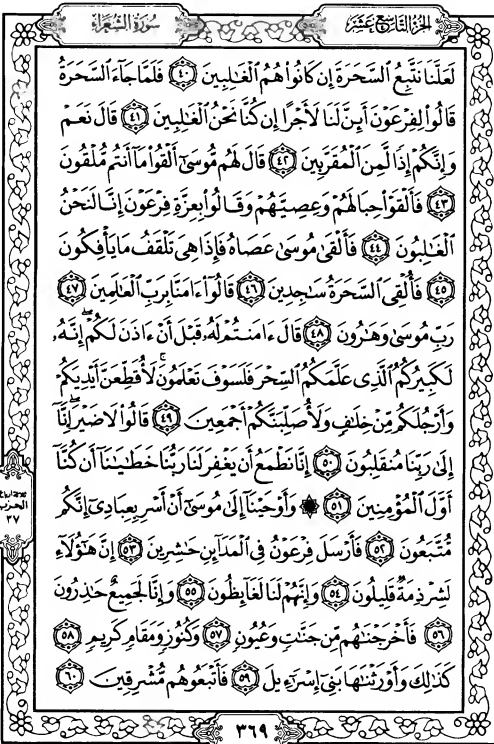 الجزء التاسع عشر
سورة الشعراء
لَعَلَّنَا نَتَّبِعُ السَّحَرَةَ إِن كَانُوا۟ هُمُ الْغَـٰلِبِينَ ٤٠ فَلَمَّا جَآءَ السَّحَرَةُ
قَالُوا۟ لِفِرْعَوْنَ أَئِنَّ لَنَا لَأَجْرًا إِن كُنَّا نَحْنُ الْغَـٰلِبِينَ ٤١ قَالَ نَعَمْ
وَإِنَّكُمْ إِذًا لَّمِنَ الْمُقَرَّبِينَ ٤٢ قَالَ لَهُم مُّوسَىٰٓ أَلْقُوا۟ مَآ أَنتُم مُّلْقُونَ
٤٣ فَأَلْقَوْا۟ حِبَالَهُمْ وَعِصِيَّهُمْ وَقَالُوا۟ بِعِزَّةِ فِرْعَوْنَ إِنَّا لَنَحْنُ
الْغَـٰلِبُونَ ٤٤ فَأَلْقَىٰ مُوسَىٰ عَصَاهُ فَإِذَا هِىَ تَلْقَفُ مَا يَأْفِكُونَ
٤٥ فَأُلْقِىَ السَّحَرَةُ سَـٰجِدِينَ ٤٦ قَالُوٓا۟ ءَامَنَّا بِرَبِّ الْعَـٰلَمِينَ ٤٧
رَبِّ مُوسَىٰ وَهَـٰرُونَ ٤٨ قَالَ ءَامَنتُمْ لَهُۥ قَبْلَ أَنْ ءَاذَنَ لَكُمْ ۖ إِنَّهُۥ
لَكَبِيرُكُمُ الَّذِى عَلَّمَكُمُ السِّحْرَ فَلَسَوْفَ تَعْلَمُونَ ۚ لَأُقَطِّعَنَّ أَيْدِيَكُمْ
وَأَرْجُلَكُم مِّنْ خِلَـٰفٍ وَلَأُصَلِّبَنَّكُمْ أَجْمَعِينَ ٤٩ قَالُوا۟ لَا ضَيْرَ ۖ إِنَّآ
إِلَىٰ رَبِّنَا مُنقَلِبُونَ ٥٠ إِنَّا نَطْمَعُ أَن يَغْفِرَ لَنَا رَبُّنَا خَطَـٰيَـٰنَآ أَن كُنَّآ
أَوَّلَ الْمُؤْمِنِينَ ٥١ ۞ وَأَوْحَيْنَآ إِلَىٰ مُوسَىٰٓ أَنْ أَسْرِ بِعِبَادِىٓ إِنَّكُم
مُّتَّبَعُونَ ٥٢ فَأَرْسَلَ فِرْعَوْنُ فِى الْمَدَآئِنِ حَـٰشِرِينَ ٥٣ إِنَّ هَـٰٓؤُلَآءِ
لَشِرْذِمَةٌ قَلِيلُونَ ٥٤ وَإِنَّهُمْ لَنَا لَغَآئِظُونَ ٥٥ وَإِنَّا لَجَمِيعٌ حَـٰذِرُونَ
٥٦ فَأَخْرَجْنَـٰهُم مِّن جَنَّـٰتٍ وَعُيُونٍ ٥٧ وَكُنُوزٍ وَمَقَامٍ كَرِيمٍ ٥٨
كَذَٰلِكَ وَأَوْرَثْنَـٰهَا بَنِىٓ إِسْرَٰٓءِيلَ ٥٩ فَأَتْبَعُوهُم مُّشْرِقِينَ ٦٠
الحزب
٣٧
٣٦٩